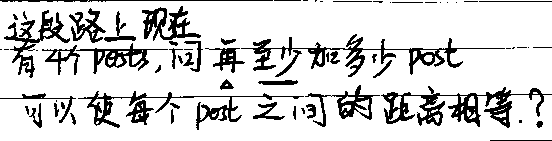 这段路上现在
有4个posts,问再至少加多少post
可以使每个post之间的距离相等.?